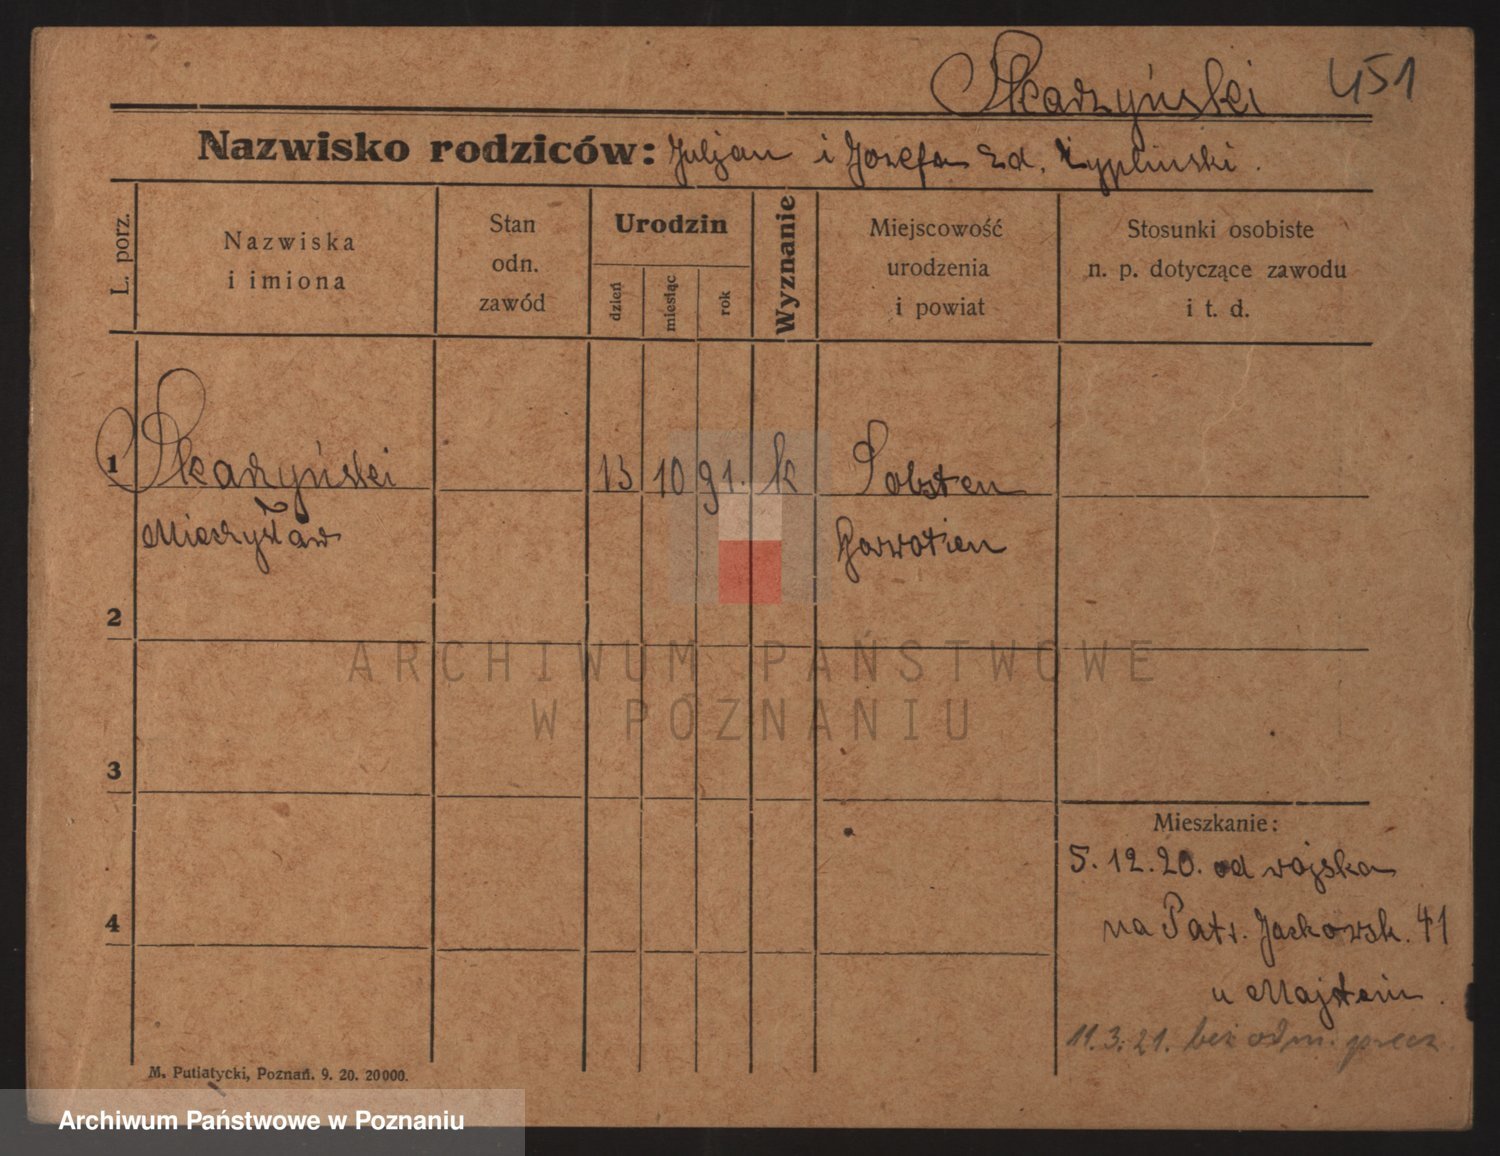 Skarzyński 451
Nazwisko rodziców: Juljan i Jozefa zd. Żyplinski.
L. porz.
Nazwiska
i imiona
Stan
odn.
zawód
Urodzin
dzień
miesiąc
rok
Wyznanie
Miejscowość
urodzenia
i powiat
Stosunki osobiste
n. p. dotyczące zawodu
i t. d.
1 Skarzyński 13 10 91. k
Mieczysław
2
3
4
Mieszkanie:
5.12.20. od wojska
na Patr. Jackowsk. 41
u Majstein.
11.3.21. bez odm. precz
M. Putiatycki, Poznań. 9. 20. 20000.
ARCHIWUM PAŃSTWOWE
W POZNANIU
Archiwum Państwowe w Poznaniu